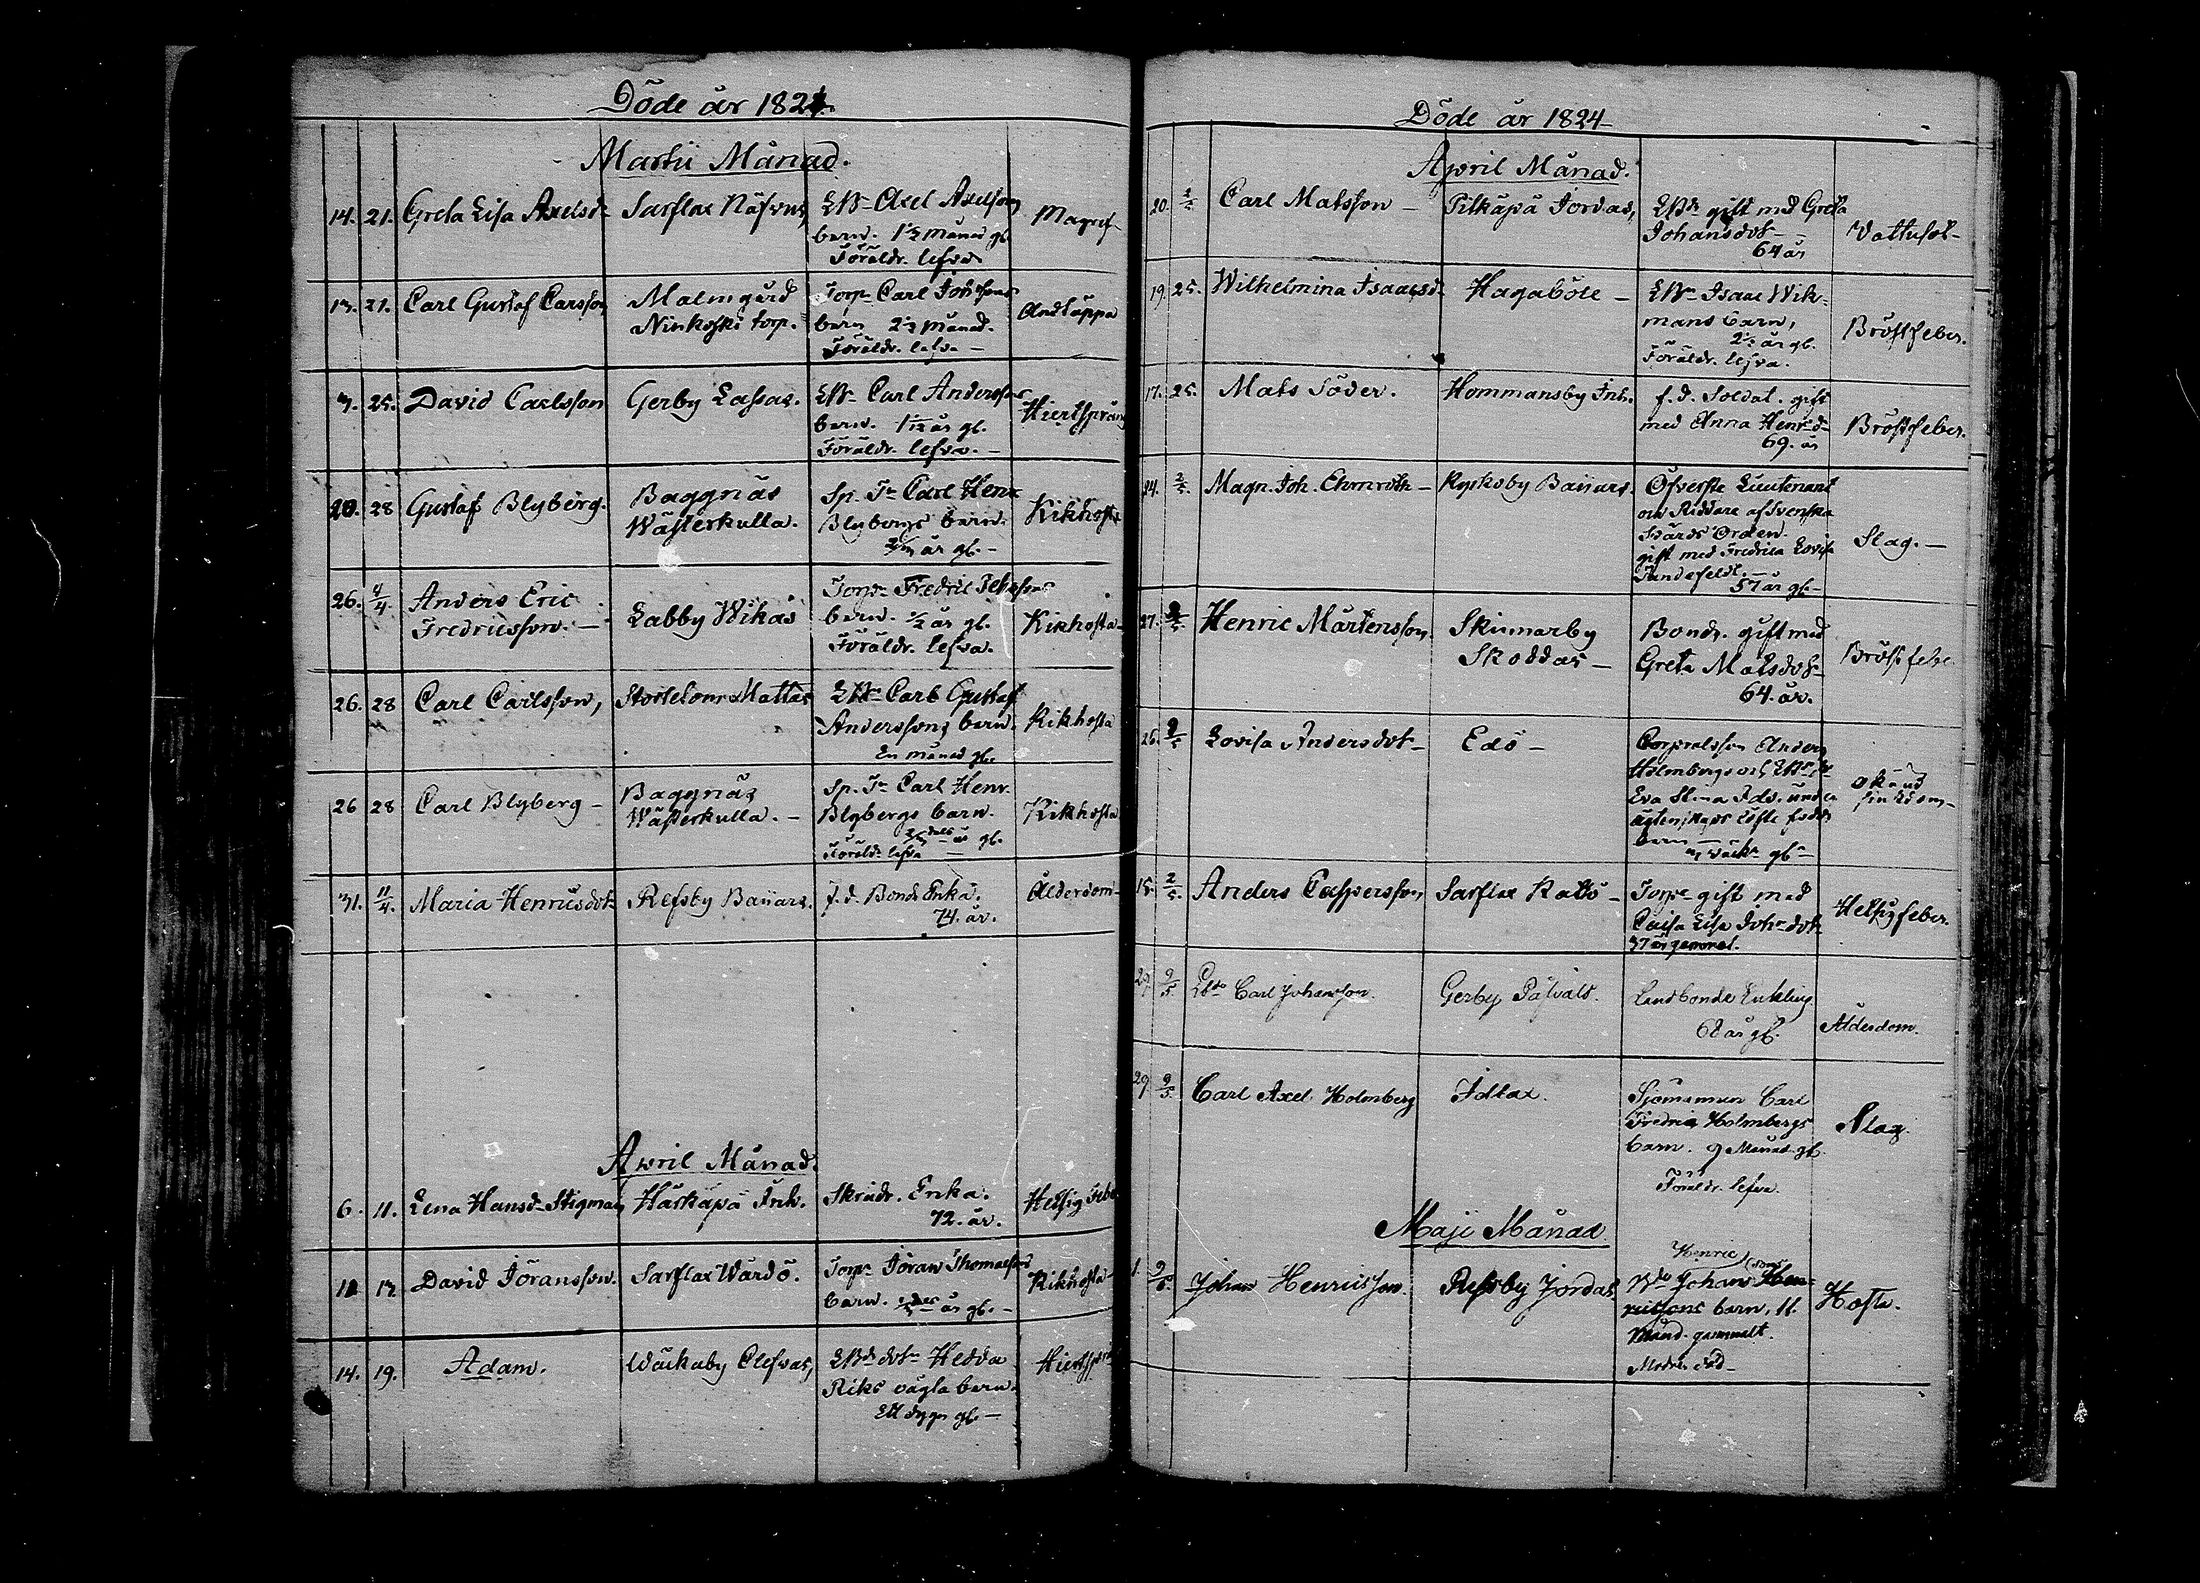 Döde år 1824.
Martii Månad.
14. 21. Greta Lisa Axelsdr Sarflax Näsvus, LBr Axel Axelssons
barn. 1½ månad gl. Magref
Föräldr. lefva
13. 21. Carl Gustaf Carlsson Malmgård Torpr Carl Johssons
Ninkoski torp. barn 2½ månad. Andtäppa
Föräldr. lefva —
3. 25. David Carlsson Gerby Lassas. LBr Carl Anderssons
barn. år gl. Hiertsprång
Föräldr. lefva. —
20. 28 Gustaf Blyberg. Baggnäs Sp. Jr Carl Henr.
Wästerkulla. Blybergs barn. Kikhosta
år gl. —
26. 4/4. Anders Eric Labby Wikas Torpr Fredric
Fredricsson. — barn. ½ år gl. Kikhosta —
Föräldr. lefva.
26. 28 Carl Carlsson, Mattas LBr Carl Gustaf
Anderssons barn. Kikhosta
En månad gl.
26 28 Carl Blyberg — Baggnäs Sp. Jr Carl Henr.
Wästerkulla. — Blybergs barn. Kikhosta
år gl.
Föräldr. lefva —
31. 11/4. Maria Henricsdotr Refsby Bauars. f. d. Bonde Enka. Ålderdom —
74. år.
April Månad.
6. 11. Lena Hansdr Stigman Härkäpä Inh. Skräddr. Enka. Hetsig Feber
72. år.
David Jöransson. Sarflax Wårdö. Torpr Jöran Thomassons
barn. år gl. — Kikhosta —
14. 19. Adam. Wäckaby Olefvas, LBds dotr Hedda
Riks oägta barn. Hiertsprång
Ett dygn gl. —
Döde år 1824
April Månad.
20. 2/5 Carl Matsson — Pitkäpä Jordas, LBde gift med Greta
Johansdotr — Vattusot —
64 år
19. 25. Wilhelmina Isaacsdr Hagaböle — LBr Isaac Wik-
mans barn,
2½ år gl. Bröstfeber.
Föräldr. lefva.
17. 25. Mats Söder. Hommansby Inh. f. d. Soldat. gift
med Anna Henrsdr Bröstfeber.
69. år
24. 2/5. Magn. Joh. Ehrnrooth — Rysksby Bauars. Öfverste Lieutenant
och Riddare af Svenska
Svärds Orden. Slag. —
gift med Fredrica Lovisa
Tandefeldt. —
57 år gl. —
27. Henric Mårtensson. Skinnarby Bonde. gift med
Skoddas — Greta Matsdotr Bröstfeber
64. år.
25. 9/5 Lovisa Andersdotr — Edö — Corporalsson Anders
Holmbergs och
Eva Stina under okänd
ägtenskaps löfte födde sjukdom —
barn —
gl —
15. 2/5. Anders Caspersson, Sarflax Kalö — Torpr gift med
Cajsa Lisa Johrdotr Hetsigfeber.
37 år gammal.
29 9/5. Carl Johansson. Gerby Påfvals. Landbonde Enkling
68 år gl. Ålderdom.
29 9/5. Carl Axel Holmberg Idlax. Sjömannen Carl
Fredric Holmbergs Slag
barn. 9 Månad gl.
Föräldr. lefva
Maji Månad
Henric
1. 9/5. Johan Henricsson. Refsby Jordas Bde Johans Hen-
ricssons barn, 11. Hosta.
Månd. gammalt.
Modren död —